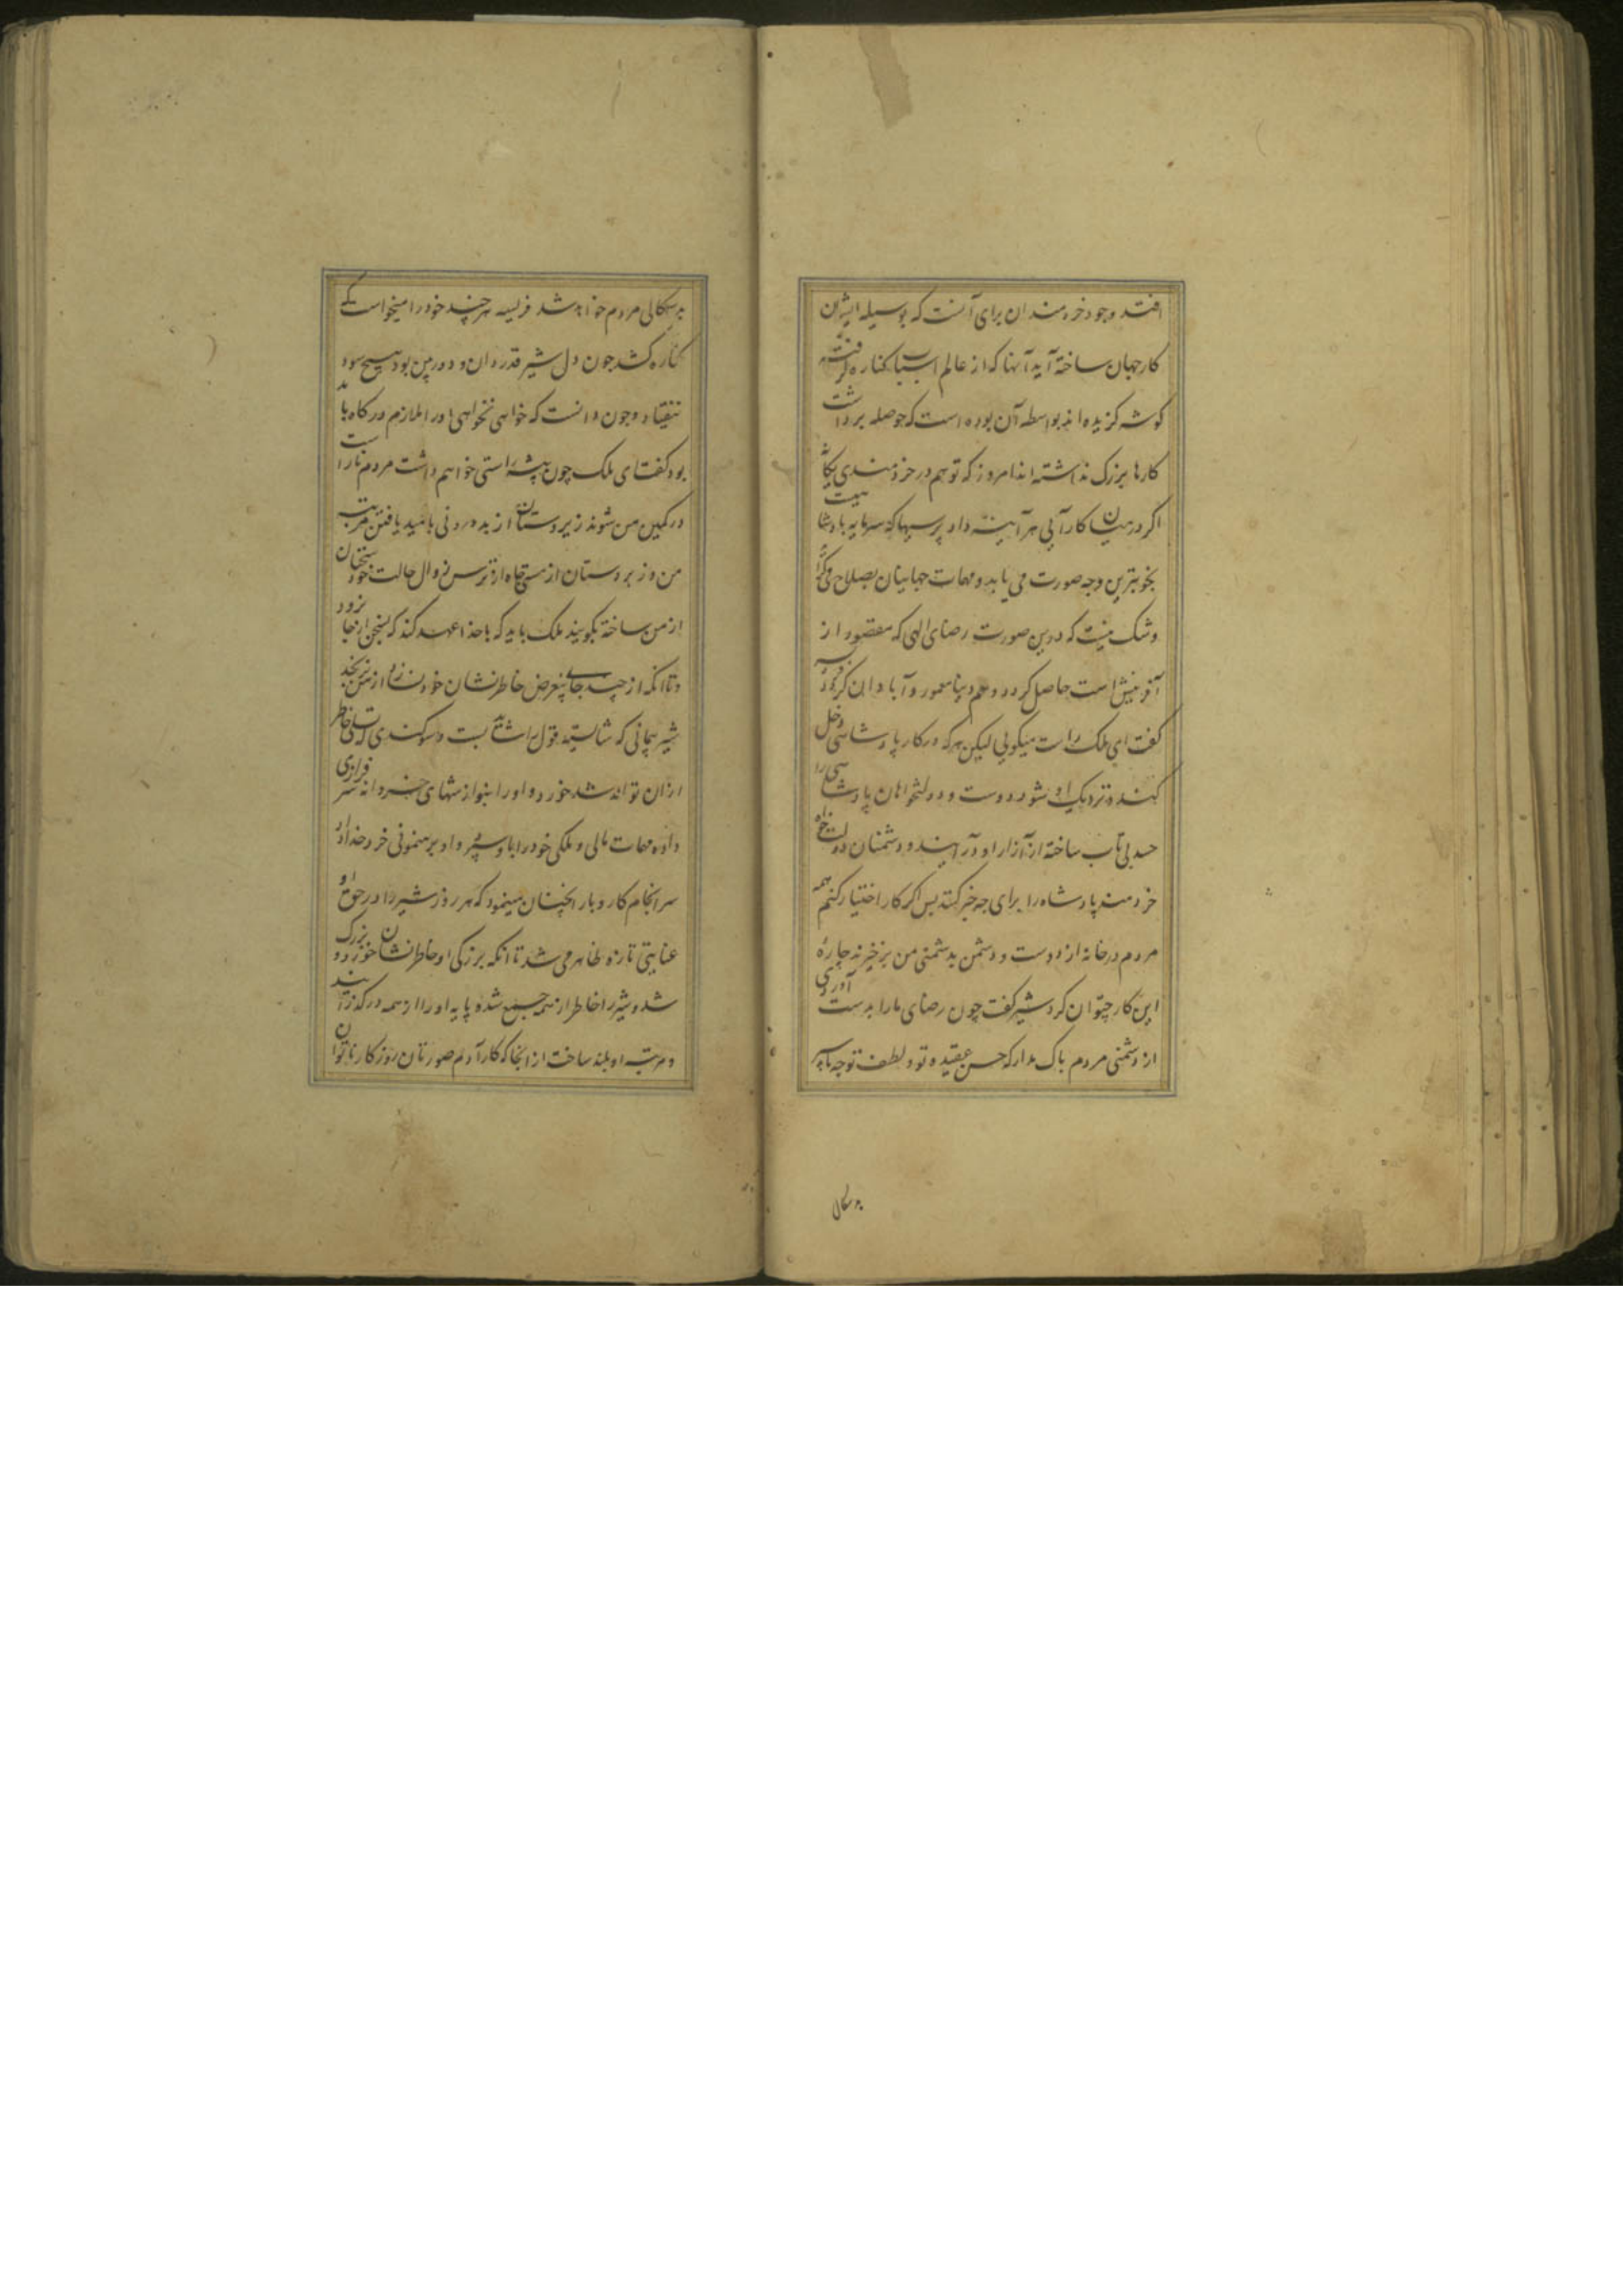 افتد وجود خردمندان برای آنست که بوسیله ایشان
کار جهان ساخته آید آنها که از عالم اسباب کناره گرفته
گوشه گزیده اند بواسطه آن بوده است که حوصله برداشت
کارها بزرگ نداشته اند امروز که تو هم در خردمندی یکتا
اگر درمیان کار آیی هر آینه داد پرسیها که سرمایه بادشا
بخوبترین وجه صورت می یابد و مهمات جهانیان بصلاح
وشک نیست که درین صورت رضای الهی که مقصود از
آفرینش است حاصل کردد و هم دنیا معمور و آبادان
کفت ای ملک راست میکویی لیکن هرکه در کار پادشاهی دخل
کند و نزدیک او شود دوست و دولتخواهان پادشاهی را
حسد بی تاب ساخته از آزار او درآیند و دشمنان دولت خواه
خردمند پادشاه را برای چه خبر کنند پس اگر کار اختیار کنم همه
مردم درخانه از دوست و دشمن بدشمنی من برخیزند چاره
این کار چتوان کرد شیر کفت چون رضای ما را بدست آوردی
از دشمنی مردم باک مدار که حسن عقیده تو و لطف توجه ما
بدسکالی
بدسکالی مردم خواهد شد فریسه هرچند خود را میخواست که
کناره کشد چون دل شیر قدردان و دوربین بود هیچ سود
نیفتاد و چون دانست که خواهی نخواهی او را ملازم درکاه باید
بود کفت ای ملک چون پیشه راستی خواهم داشت مردم ناراست
در کمین من شوند زیردستان از بددرونی بامید یافتن مرتبه
من و زبردستان از مستی جاه از ترس زوال حالت خود سخنان
از من ساخته بکویند ملک باید که باخدا عهد کند که بسخن از جا نرود
و تا آنکه از چند جای بیغرض خاطرنشان خود نسازد از من نرنجد
شیر پیمانی که شایسته قول باشد بست و سوکندی که تسلی خاطر
ازان تواند شد خورد و او را بنوازشهای خسروانه سرفرازی
داده مهمات مالی و ملکی خود را باو سپرد او برهنمونی خرد خداداد
سرانجام کاروبار آنچنان مینمود که هر روز شیر را در حق او
عنایتی تازه ظاهر می شد تا آنکه بزرکی او خاطرنشان خورد و بزرک
شد و شیر را خاطر از همه جمع شده پایه او را از همه درکذرانید
و مرتبه او بلند ساخت از آنجا که کار آدم صورتان روزکار ناتوان